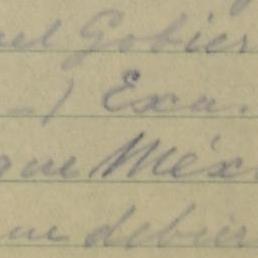 el Gobier
-) Exa.
que Méx
ue debier